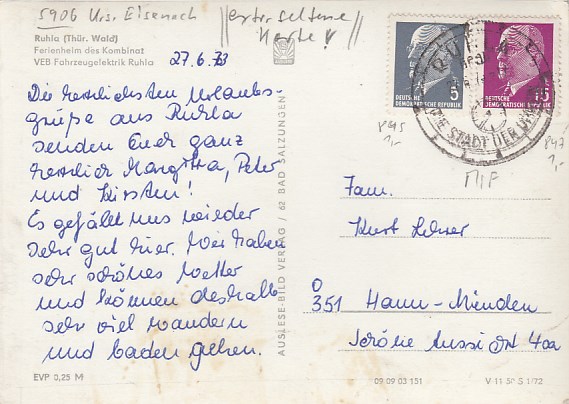 5906 Krs. Eisenach
extra seltene
Karte!
Ruhla (Thür. Wald)
Ferienheim des Kombinat
VEB Fahrzeugelektrik Ruhla
27.6.73
Die herzlichsten Urlaubs-
grüße aus Ruhla
senden Euch ganz
herzlich Margitta, Peter
und Kirsten!
Es gefällt uns wieder
sehr gut hier. Wir haben
sehr schönes Wetter
und können deshalb
sehr viel wandern
und baden gehen.
EVP 0,25 M
AUSLESE-BILD VERLAG / 62 BAD SALZUNGEN
5
DEUTSCHE
DEMOKRATISCHE REPUBLIK
15
DEUTSCHE
DEMOKRATISCHE REPUBLIK
RUHLA
DIE STADT DER UHREN
845
1,-
847
1,-
MiF
Fam.
Kurt
351 Hann-Münden
40a
09 09 03 151
V 11 50 S 1/72